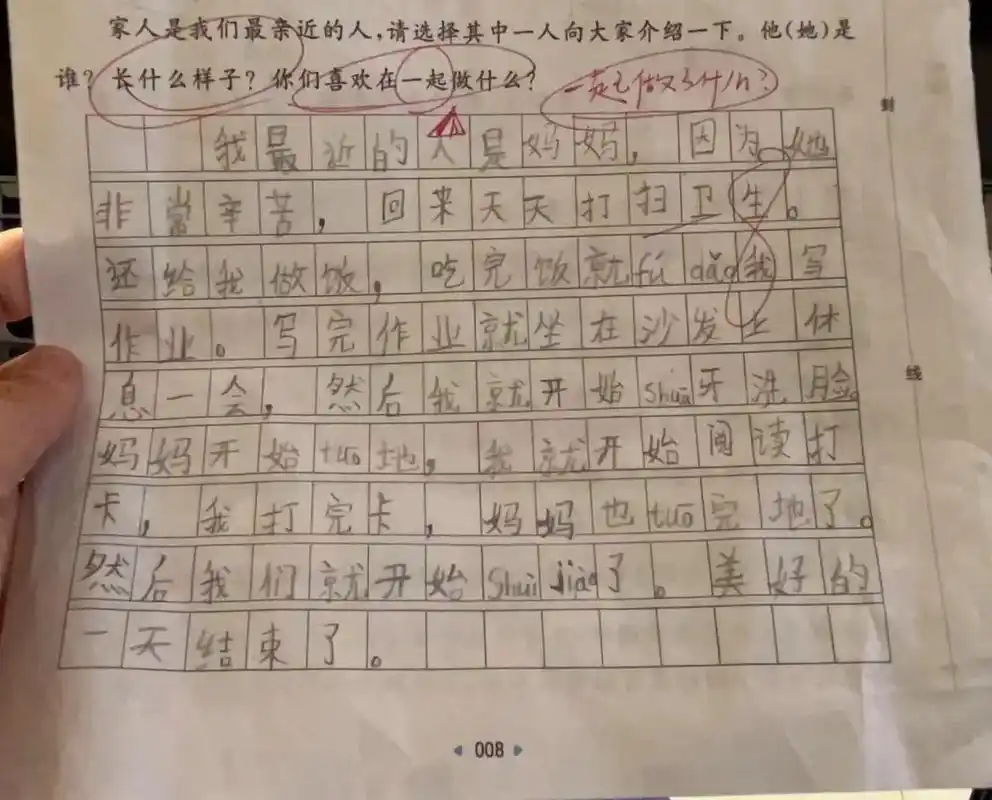 家人是我们最亲近的人,请选择其中一人向大家介绍一下。他(她)是
谁?长什么样子?你们喜欢在一起做什么?
一起做了什么?
封
我最近的人是妈妈,因为她
非常辛苦,回来天天打扫卫生。
还给我做饭,吃完饭就fǔ dǎo我写
作业。写完作业就坐在沙发上休
息一会,然后我就开始shuā牙洗脸。
线
妈妈开始tuō地,我就开始阅读打
卡,我打完卡,妈妈也tuō完地了。
然后我们就开始shuì jiào了。美好的
一天结束了。
008